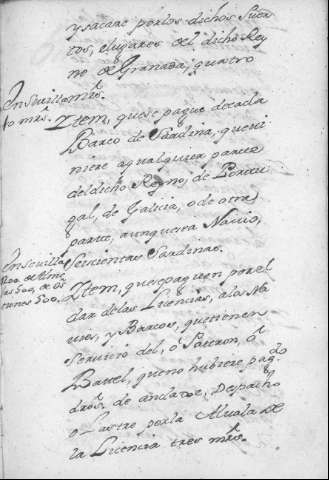 y sacare por los dichos Puer
tos, e lugares del dicho Rey
no de Granada, quatro
mrs.
En Sevilla
o mrs.
Ytem, que se pague de cada
Barco de Sardina, que vi
niere a qualquiera parte
del dicho Reyno, de Portu
gal, de Galicia, o de otra
parte, aunque sea Navio,
seiscientas Sardinas.
En Sevilla
500.
Ytem, que se paguen por el
dar de las Licencias, a los Na
vios, y Barcos, que tienen
servicio del, o Patron, o
Batel, que no hubiere pagdo
dros. de anclaxe, Despacho
o Lastre por la Alvala de
la Licencia tres mrs.